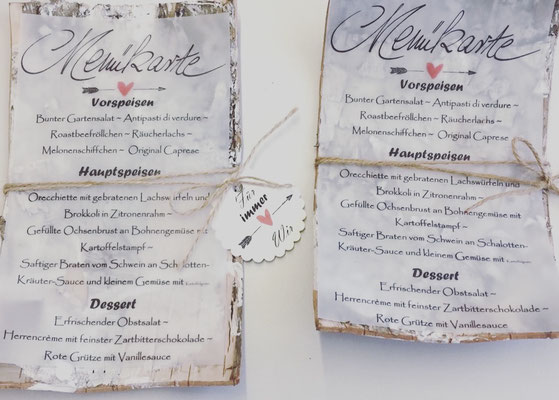 Menükarte
Vorspeisen
Bunter Gartensalat ~ Antipasti di verdure ~
Roastbeefröllchen ~ Räucherlachs ~
Melonenschiffchen ~ Original Caprese
Hauptspeisen
Orecchiette mit gebratenen Lachswürfeln und
Brokkoli in Zitronenrahm ~
Gefüllte Ochsenbrust an Bohnengemüse mit
Kartoffelstampf ~
Saftiger Braten vom Schwein an Schalotten-
Kräuter-Sauce und kleinem Gemüse mit
Dessert
Erfrischender Obstsalat ~
Herrencrème mit feinster Zartbitterschokolade ~
Rote Grütze mit Vanillesauce
Für
immer
Wir
Menükarte
Vorspeisen
Bunter Gartensalat ~ Antipasti di verdure ~
Roastbeefröllchen ~ Räucherlachs ~
Melonenschiffchen ~ Original Caprese
Hauptspeisen
Orecchiette mit gebratenen Lachswürfeln und
Brokkoli in Zitronenrahm ~
Gefüllte Ochsenbrust an Bohnengemüse mit
Kartoffelstampf ~
Saftiger Braten vom Schwein an Schalotten-
Kräuter-Sauce und kleinem Gemüse mit
Dessert
Erfrischender Obstsalat ~
Herrencrème mit feinster Zartbitterschokolade ~
Rote Grütze mit Vanillesauce